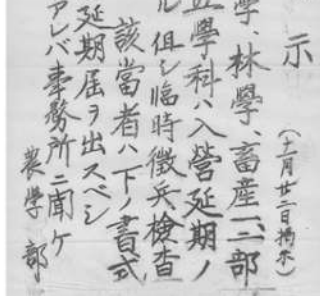 示
(十一月廿二日掲示)
学、林學、畜産一、二部
学科ハ入營延期ノ
ル但シ臨時徴兵檢査
該當者ハ下ノ書式
延期届ヲ出スベシ
アレバ事務所ニ聞ケ
農學部